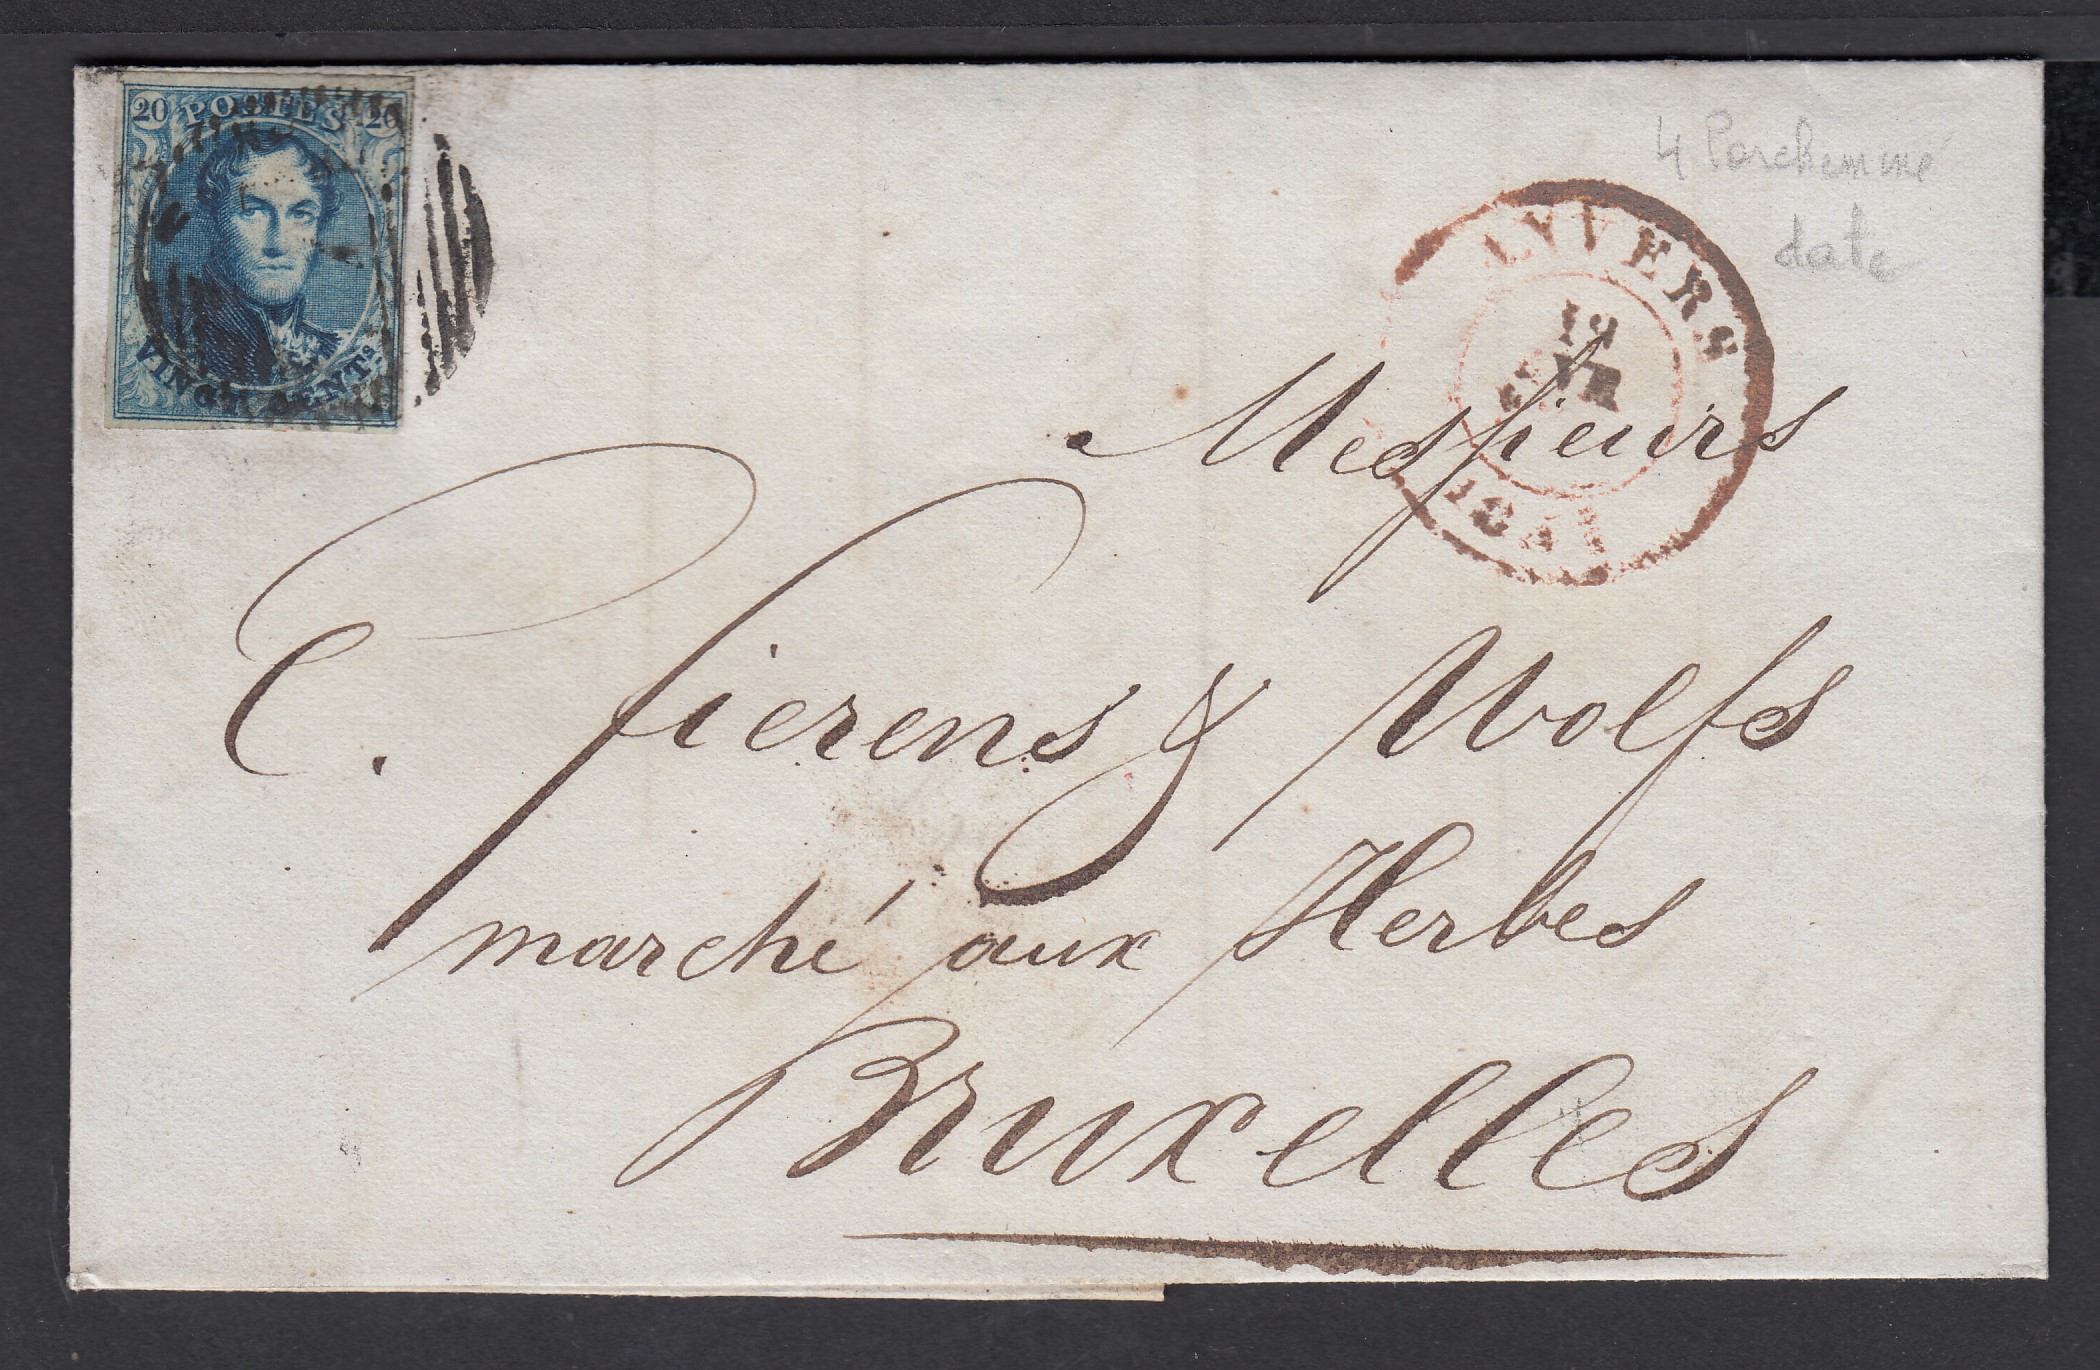 20 POSTES 20
VINGT CENTS
4 Parcheminé
date
ANVERS
12
1851
Messieurs
C. Fierens & Wolfs
marché aux Herbes
Bruxelles